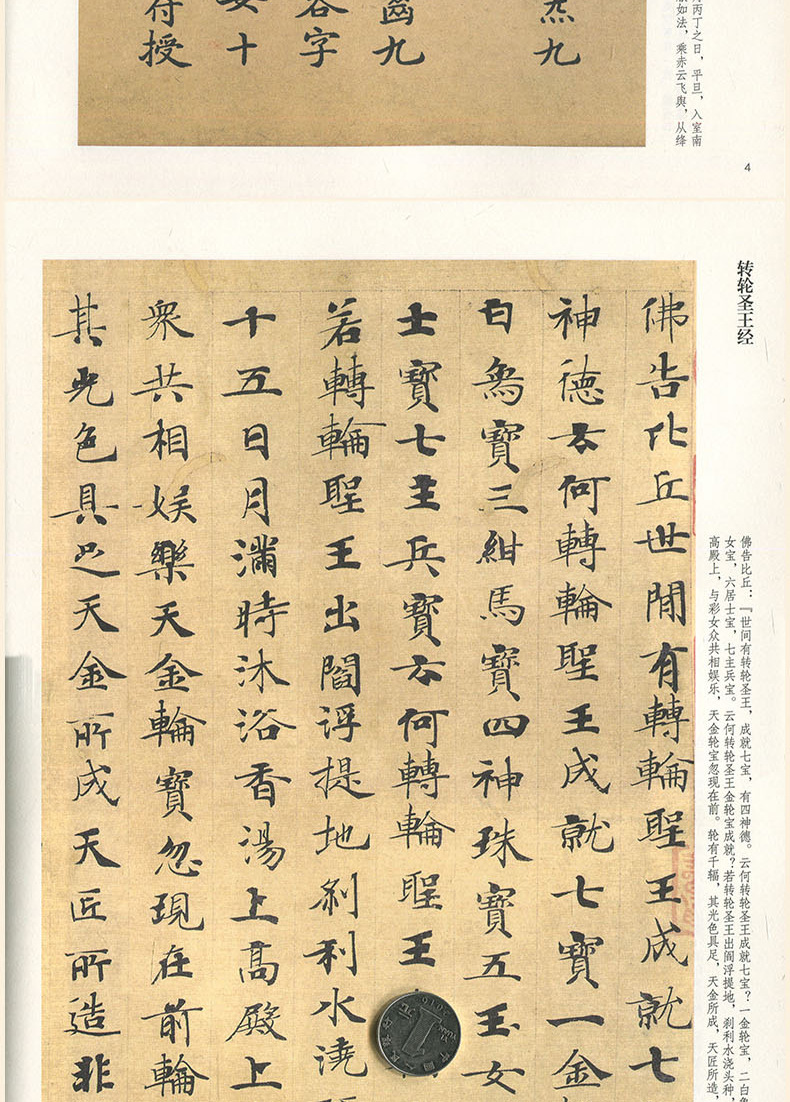 丙丁之日，平旦，入室南
如法，乘赤云飞舆，从绛
炁九
齒九
字
十
符授
4
转轮圣王经
佛告比丘：「世间有转轮圣王，成就七宝，有四神德。云何转轮圣王成就七宝？一金轮宝，二白
女宝，六居士宝，七主兵宝。云何转轮圣王金轮宝成就？若转轮圣王出阎浮提地，刹利水浇头种，
高殿上，与彩女众共相娱乐，天金轮宝忽现在前。轮有千辐，其光色具足，天金所成，天匠所造，
佛告比丘世間有轉輪聖王成就七
神德云何轉輪聖王成就七寶一金
白象寶三紺馬寶四神珠寶五玉女
士寶七主兵寶云何轉輪聖王
若轉輪聖王出閻浮提地剎利水澆
十五日月滿時沐浴香湯上高殿上
衆共相娱樂天金輪寶忽現在前輪
其光色具足天金所成天匠所造非